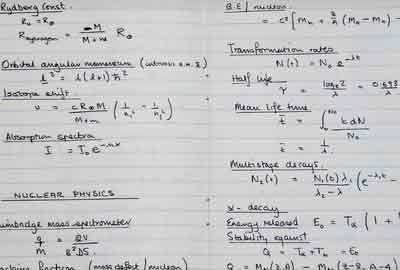 Rydberg Const.
R₀ = R∞
R hydrogen = M / M+m R∞
Orbital angular momentum
l² = l(l+1) ħ²
Isotope shift.
ν = cR∞M / M+m (1/n₁² - 1/n₂²)
Absorption spectra
I = I₀e
NUCLEAR PHYSICS
mass spectrometer
q/m = 2V / B²DS
fraction (mass defect / nucleon)
B.E / nucleon
= c² [Mₙ + Z/A (Mₕ - Mₙ) -
Transformation rates
N(t) = N₀ e^-λt
Half life
τ = logₑ2 / λ = 0.693 / λ
Mean life time
t̄ = ∫ t dN / N₀
t̄ = 1/λ
Multistage decays.
N₂(t) = N₁(0) λ₁ / λ₂ - λ₁ (e^-λ₁t -
α - decay
Energy released E₀ = Tα (1 +
Stability against
Q = Tα + Tₕ = E₀